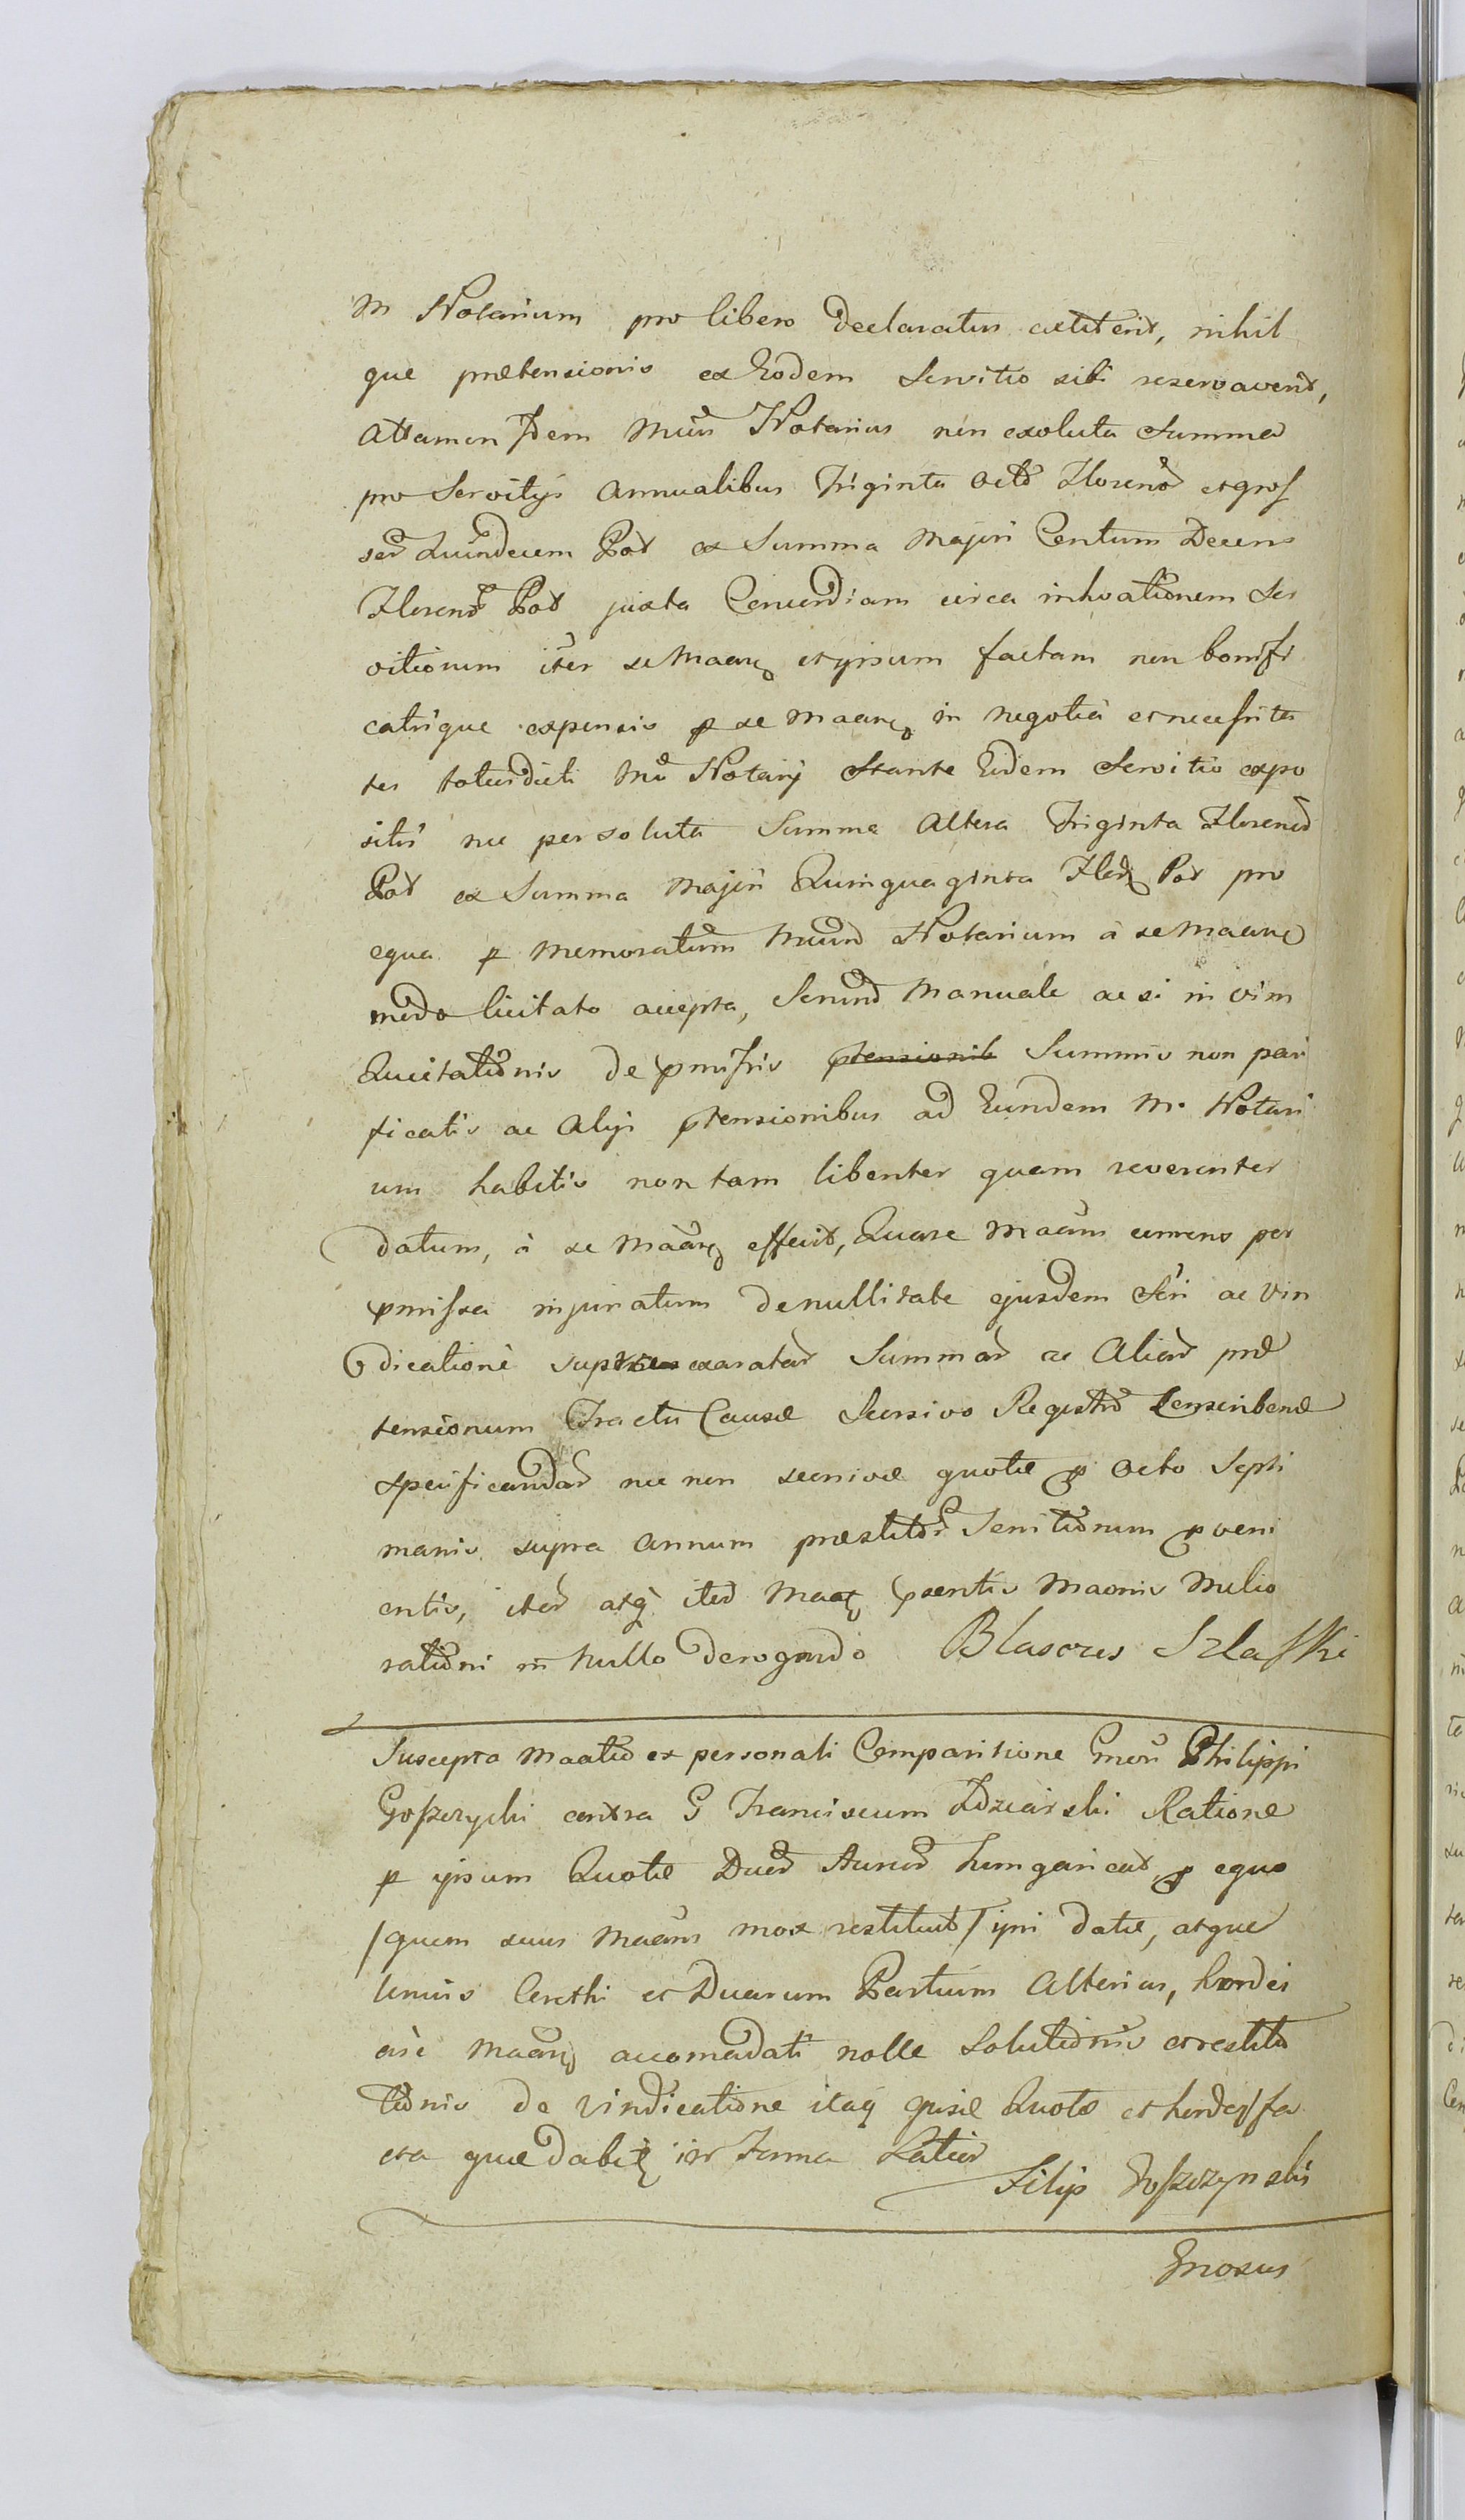 M Notarium pro libero declaratus extiterit, nihil
que prætensionis ex Eodem Servitio sibi reservaverit,
attamen Idem Mus Notarius non exoluta Summa
pro Servitys annualibus Triginta octo Floreno et gros
ser Quindecem Pol ex Summa Majori Centum Decem
Floreno Pol juxta Convendiam circa inhoationem Ser
vitiorum iter se Maarq et ipsum factam non bonifi
catisque expensis p se Maarq in negotia et necessita
tes totiesdicti Mi Notarij Stante Eodem Servitio expo
sitis nec persoluta Summa altera Triginta Floreno
Pol ex Summa Majori Quinquaginta Flor Pol pro
equa p memoratum Mum Notarium à se Maarq
modo licitato accepta, Scrind Manuale ac si in vim
Quietationis de pmissis Summis non paci
ficatis ac alijs ptensionibus ad Eundem M. Notari
um habitis non tam libenter quam reverenter
datum, à se Maarq effecit, Quare Maans
pmissa injuriatum de nullitate ejusdem Scri ac vin
dicatione exaratar Summar ac Aliar præ
tensionum Tractu Causæ Sursivo Regestro Conscribendæ
specificandar nec non quotæ p octo Septi
manis supra annum præstitor Servitiorum pveni
entis, iter atq iter Maarq psentis Maonis Melio
rationi in Nullo derogando Blascus Szlaski
Suscepta Maatio ex personali Comparitione Gnosi Philippi
Goszczycki contra G Franciscum Ratione
p ipsum Quotæ Duor Aureor hungarical p equo
/quem suus Maans mox restituit/ ipsi datæ, atque
Unius Corethi et Duarum Partium Alterius, hordei
Maarq accomadati nolle Solutionis et restitu
tionis de vindicatione itaq psisæ Quotæ et hordei/fa
cta quæ dabitq in Forma Latior
Filip Goszczynski
Gnosus